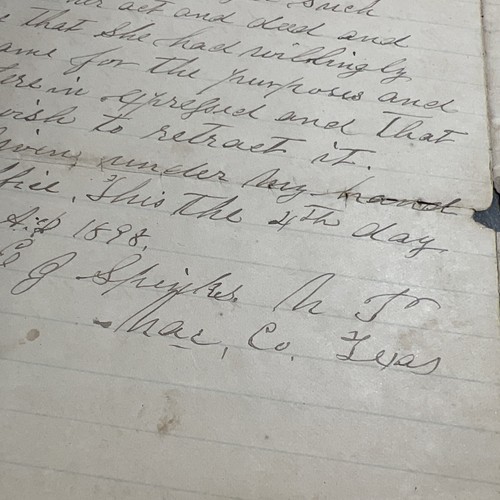 her act and deed and
that she had willingly
ame for the purposes and
ere in expressed and that
wish to retract it.
Given under my hand
ffice. This the 4th day
1898.
G J Spinks N P
Nac, Co, Texas